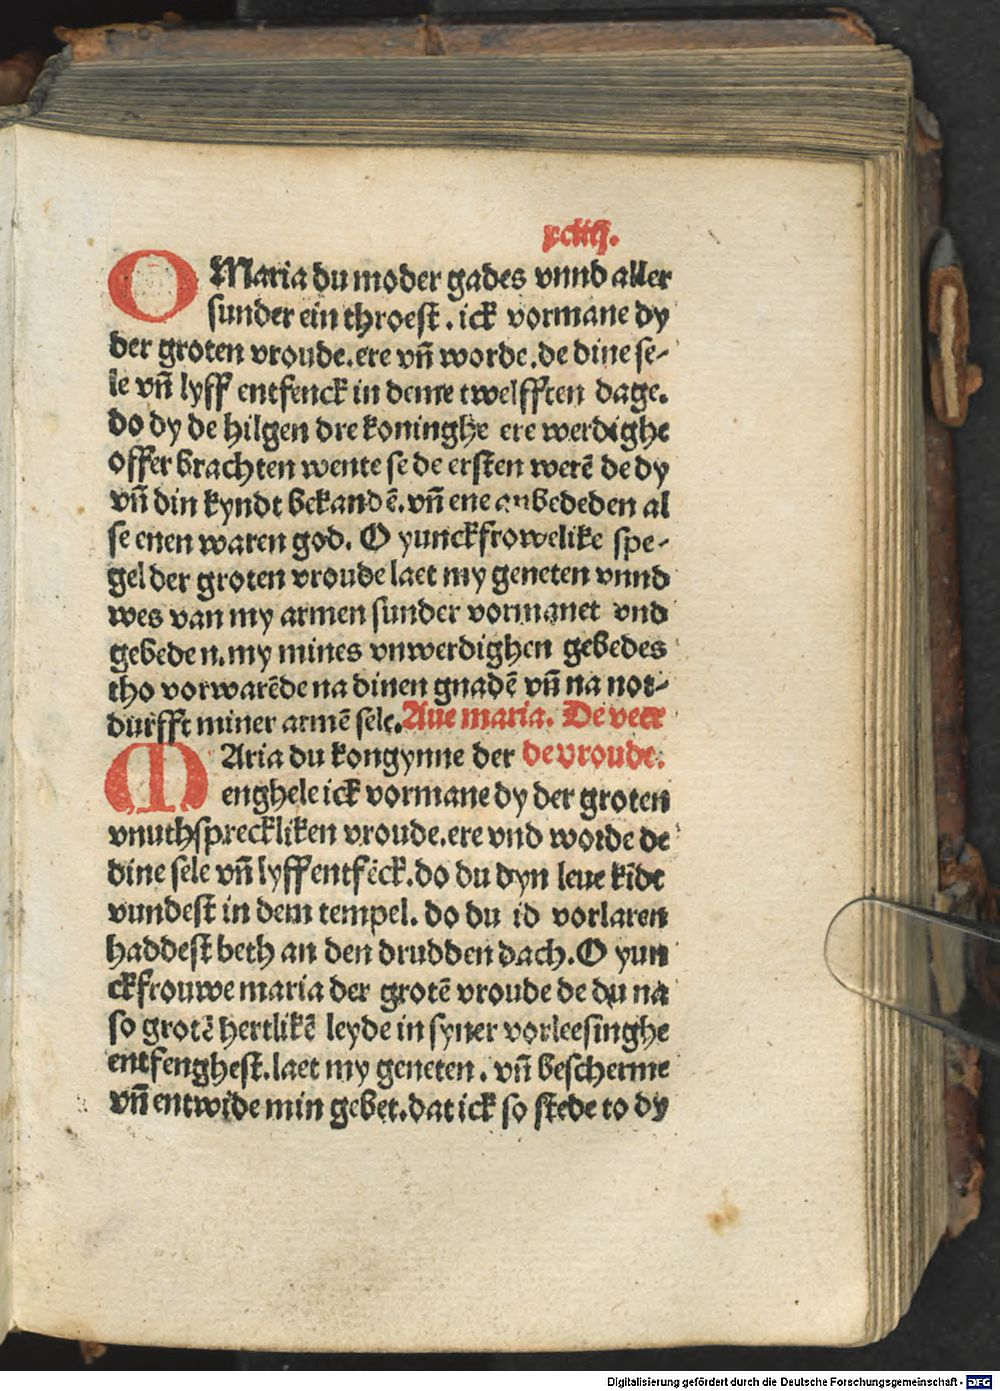 xciiij.
O Maria du moder gades vnnd aller
sunder ein throest. ick vormane dy
der groten vroude. ere vñ worde. de dine se-
le vñ lyff entfenck in deme twelfften dage.
do dy de hilgen dre koninghe ere werdighe
offer brachten wente se de ersten werē de dy
vñ din kyndt bekandē. vñ ene anbededen al
se enen waren god. O yunckfrowelike spe-
gel der groten vroude laet my geneten vnnd
wes van my armen sunder vormanet vnd
gebeden. my mines vnwerdighen gebedes
tho vorwarēde na dinen gnadē vñ na not-
durfft miner armē sele. Aue maria. De veer
MAria du kongynne der de vroude.
enghele ick vormane dy der groten
vnuthspreckliken vroude. ere vnd worde de
dine sele vñ lyff entfēck. do du dyn leue kīdt
vundest in dem tempel. do du id vorlaren
haddest beth an den drudden dach. O yun
ckfrouwe maria der grotē vroude de du na
so grotē hertlikē leyde in syner vorleesinghe
entfenghest. laet my geneten. vñ bescherme
vñ entwide min gebet. dat ick so stede to dy
Digitalisierung gefördert durch die Deutsche Forschungsgemeinschaft - DFG